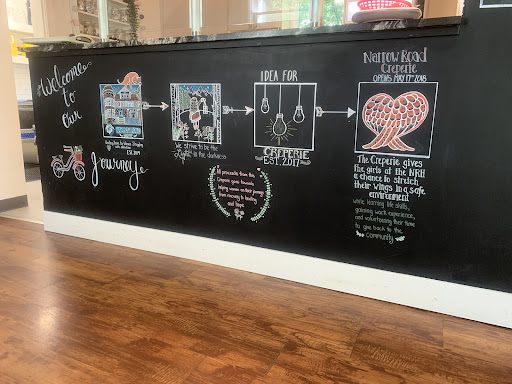 Welcome
to
our
Journey
We strive to be the
Light in the darkness
IDEA FOR
CREPERIE
EST. 2017
All proceeds from this
Creperie goes towards
helping women on their journeys
from recovery to healing
and hope
Narrow Road
Creperie
OPENS MAY 17th 2018
The Creperie gives
the girls of the NRH
a chance to stretch
their wings in a safe
environment
while learning life skills,
gaining work experience,
and volunteering their time
to give back to the
community